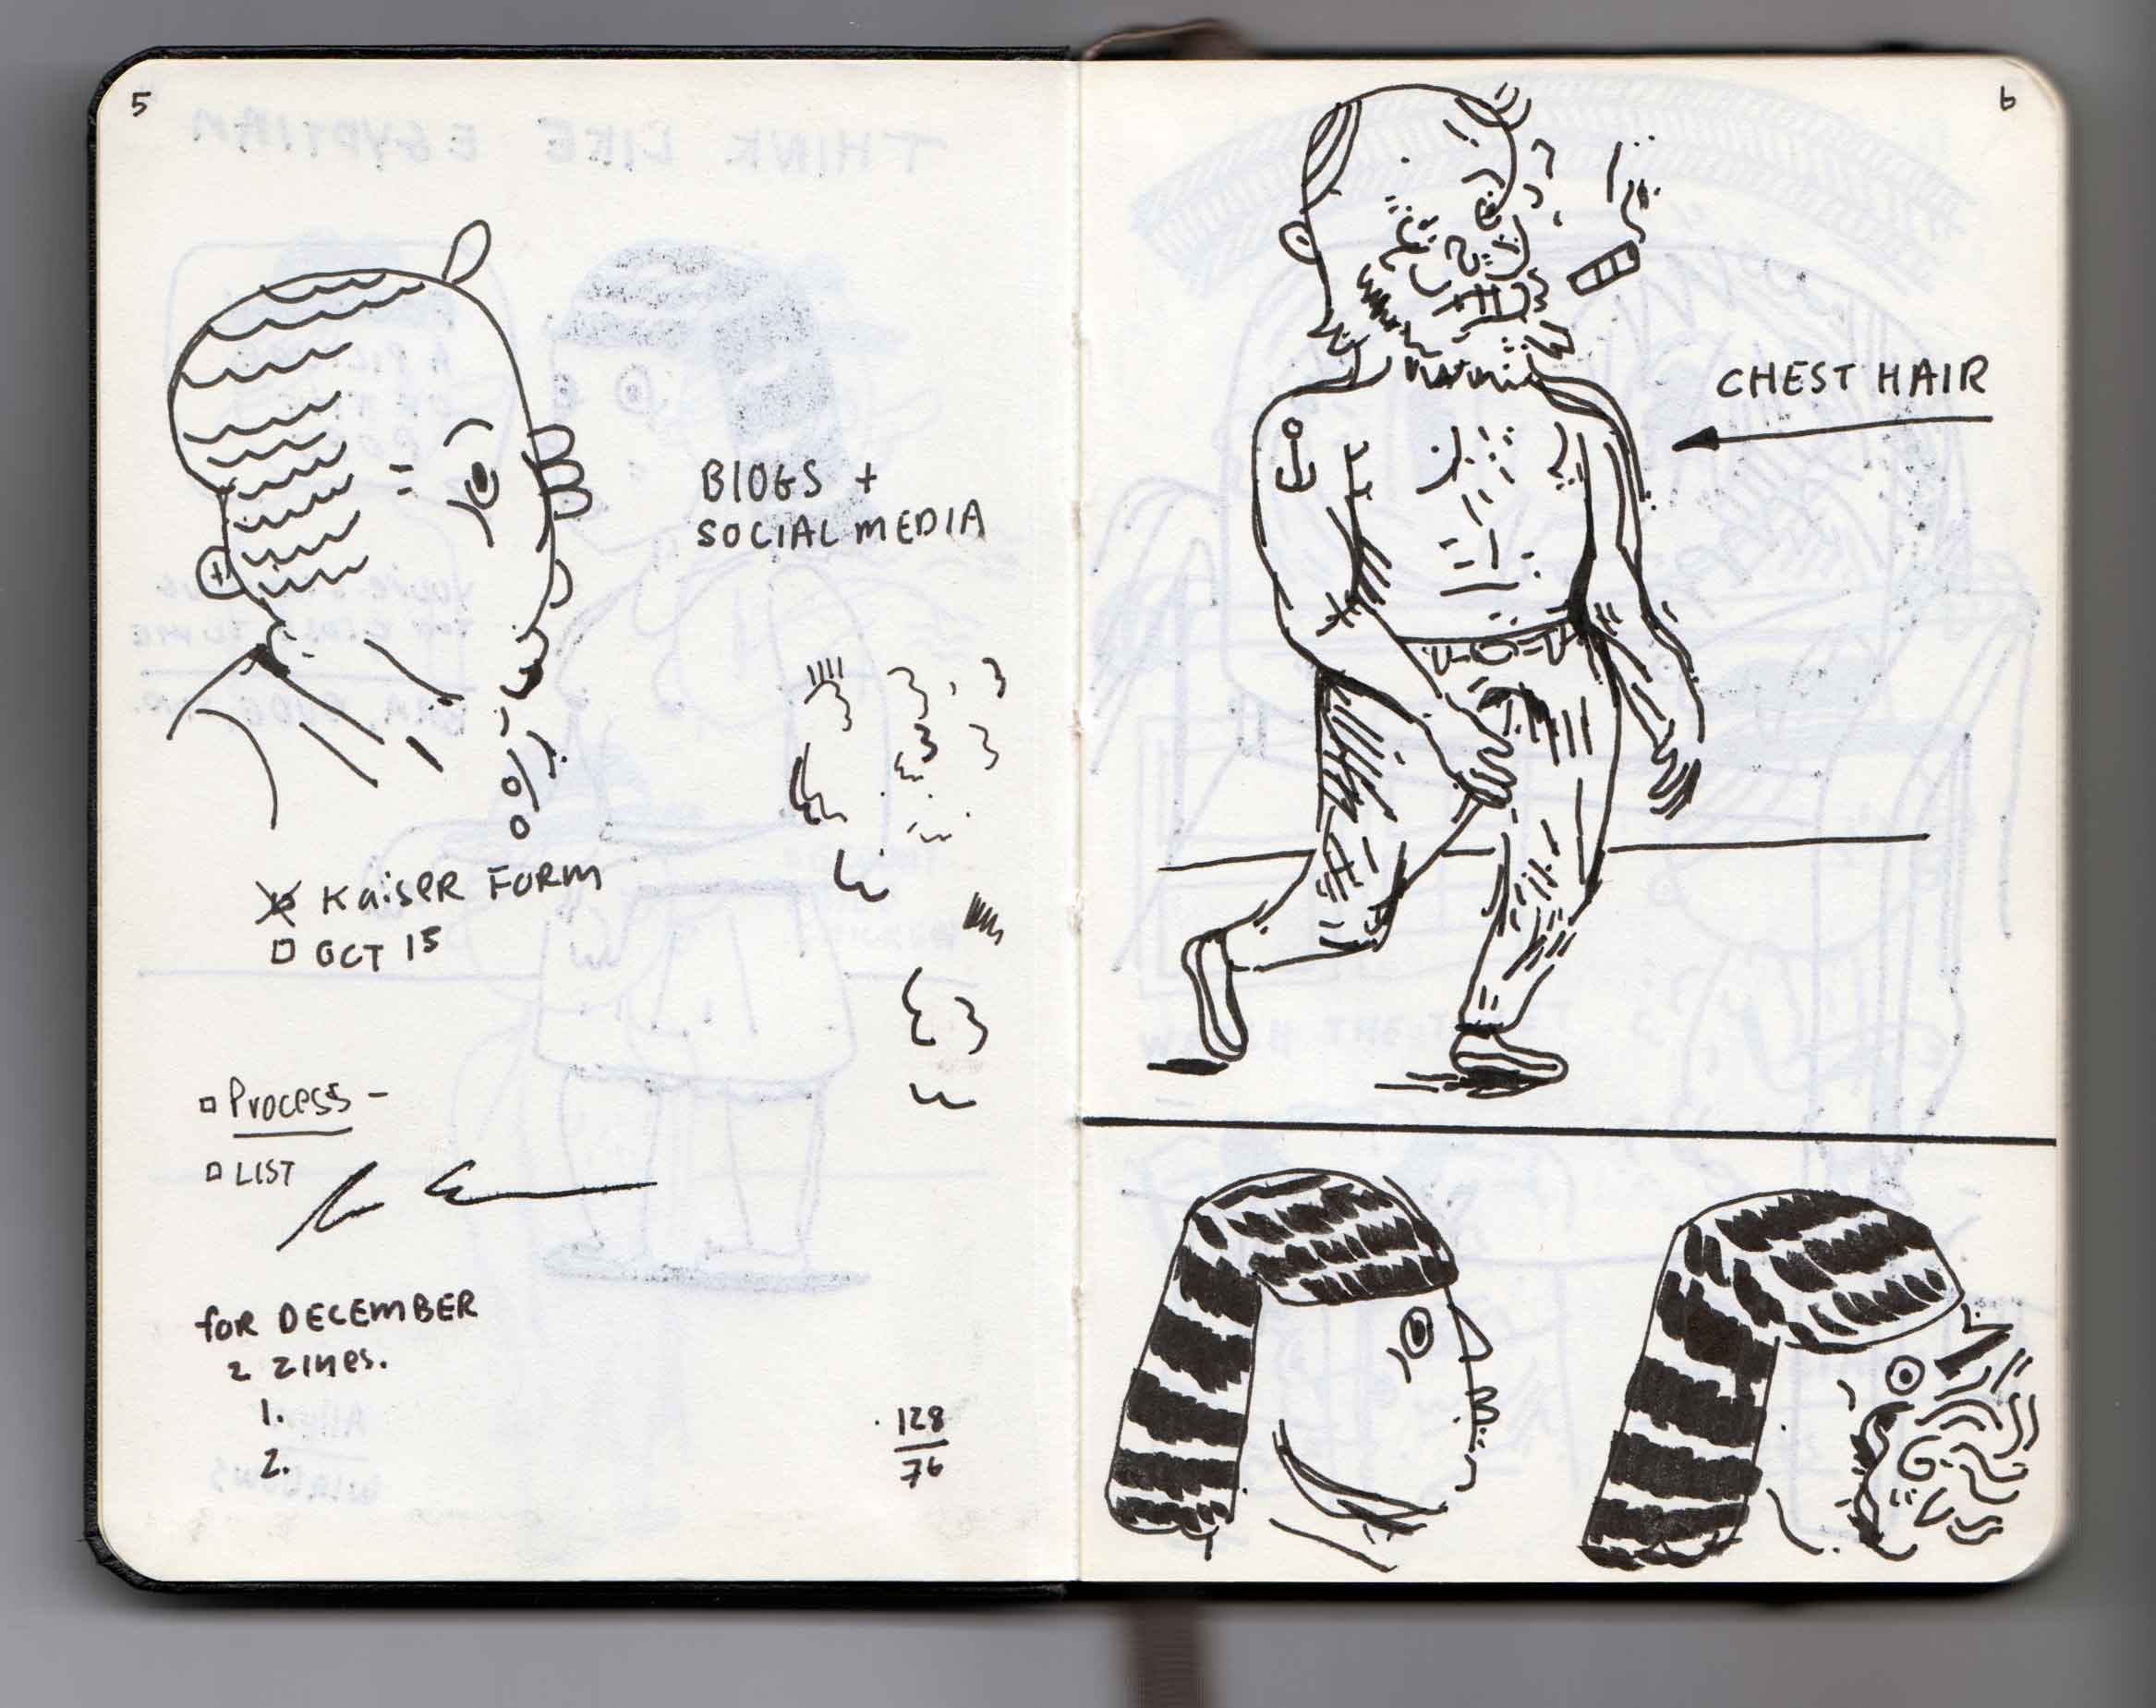 5
BlOGS +
SOCIAL MEDIA
KaiseR FORM
OCT 15
Process -
LIST
foR DECEMBER
2 ZINes.
1.
2.
128
76
6
CHEST HAIR